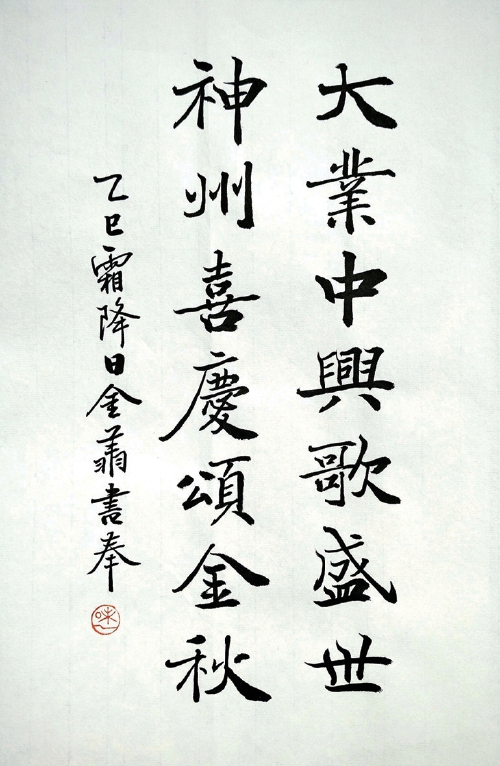 大業中興歌盛世
神州喜慶頌金秋
乙巳霜降日金萠書奉